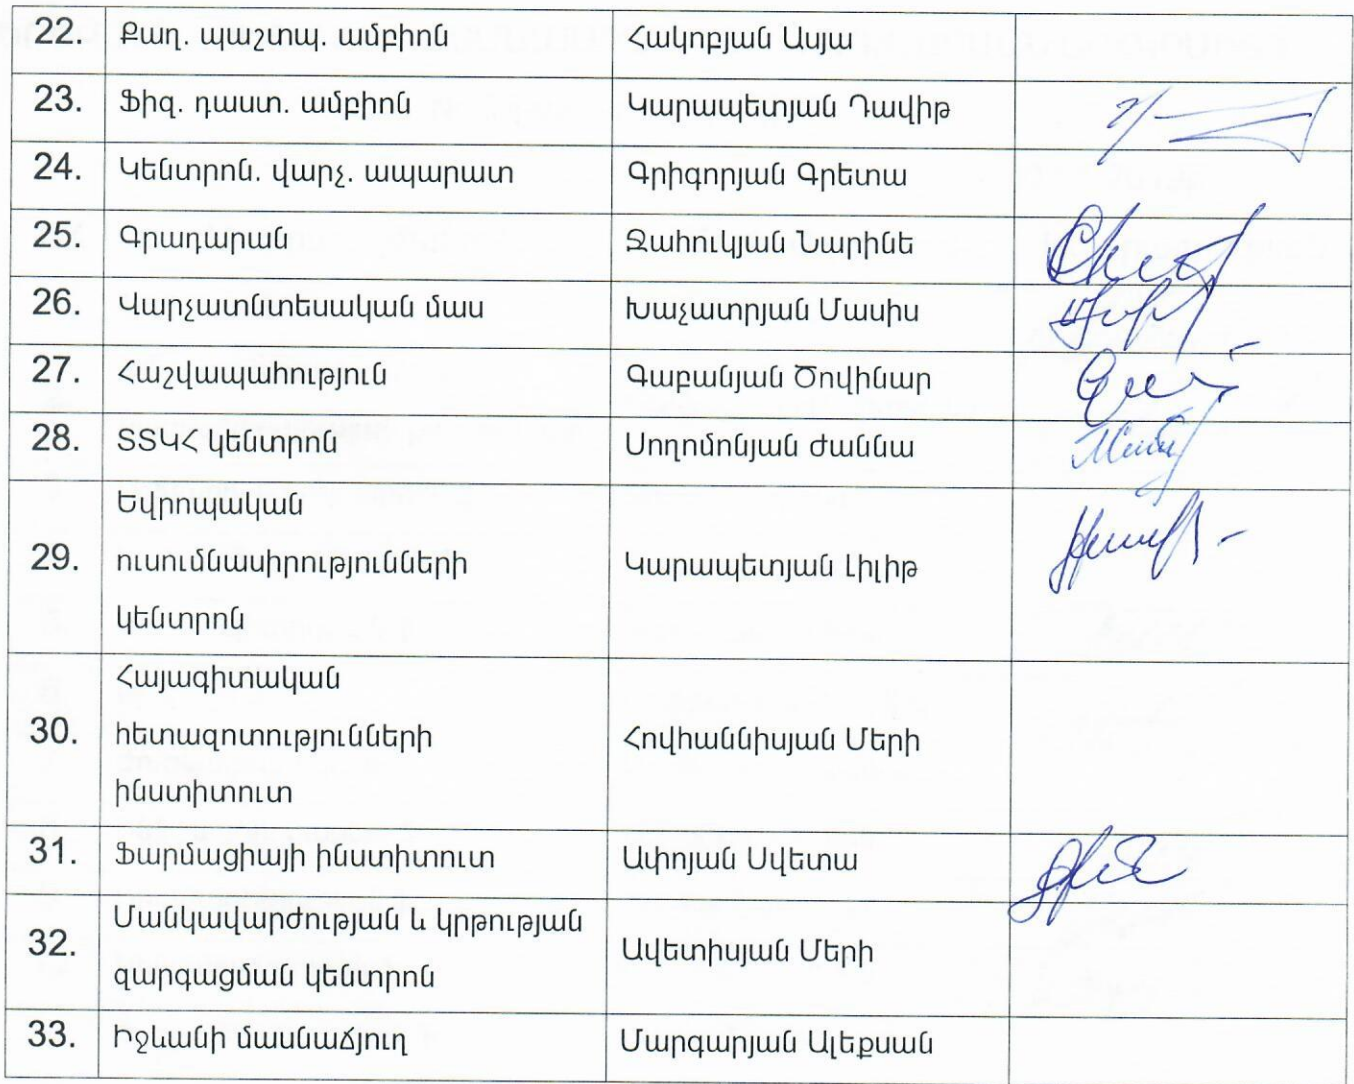 22. Քաղ. պաշտպ. ամբիոն Հակոբյան Ասյա
23. Ֆիզ. դաստ. ամբիոն Կարապետյան Դավիթ
24. Կենտրոն. վարչ. ապարատ Գրիգորյան Գրետա
25. Գրադարան Ջահուկյան Նարինե
26. Վարչատնտեսական մաս Խաչատրյան Մասիս
27. Հաշվապահություն Գաբանյան Ծովինար
28. ՏՏԿՀ կենտրոն Սողոմոնյան Ժաննա
Եվրոպական
29. ուսումնասիրությունների Կարապետյան Լիլիթ
կենտրոն
Հայագիտական
30. հետազոտությունների Հովհաննիսյան Մերի
ինստիտուտ
31. Ֆարմացիայի ինստիտուտ Ափոյան Սվետա
Մանկավարժության և կրթության
32. զարգացման կենտրոն Ավետիսյան Մերի
33. Իջևանի մասնաճյուղ Մարգարյան Ալեքսան